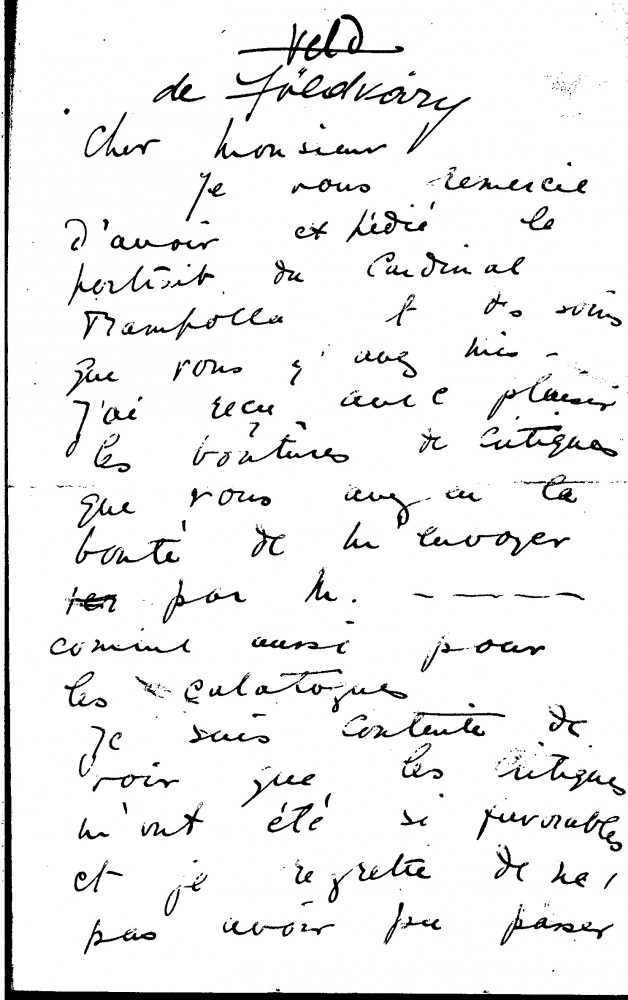 Veld
de Földváry
Cher Monsieur
Je vous remercie
d'avoir expédié le
portrait du Cardinal
Rampolla & des soins
que vous y avez mis -
J'ai reçu avec plaisir
les de critiques
que vous avez eu la
bonté de m'envoyer
par M. – – – –
comme aussi pour
les catalogues
Je suis contente de
voir que les critiques
m'ont été si favorables
et je regrette de ne
pas avoir pu passer